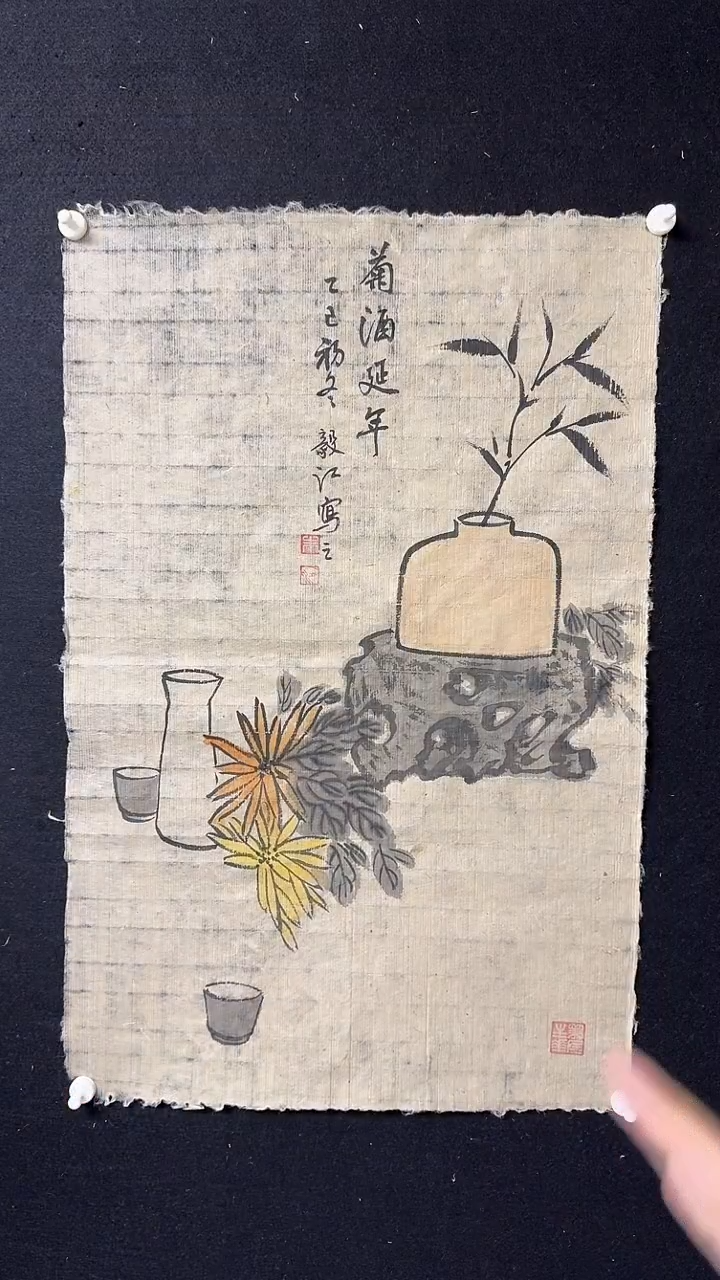 菊酒延年
乙巳初冬 毅江寫之